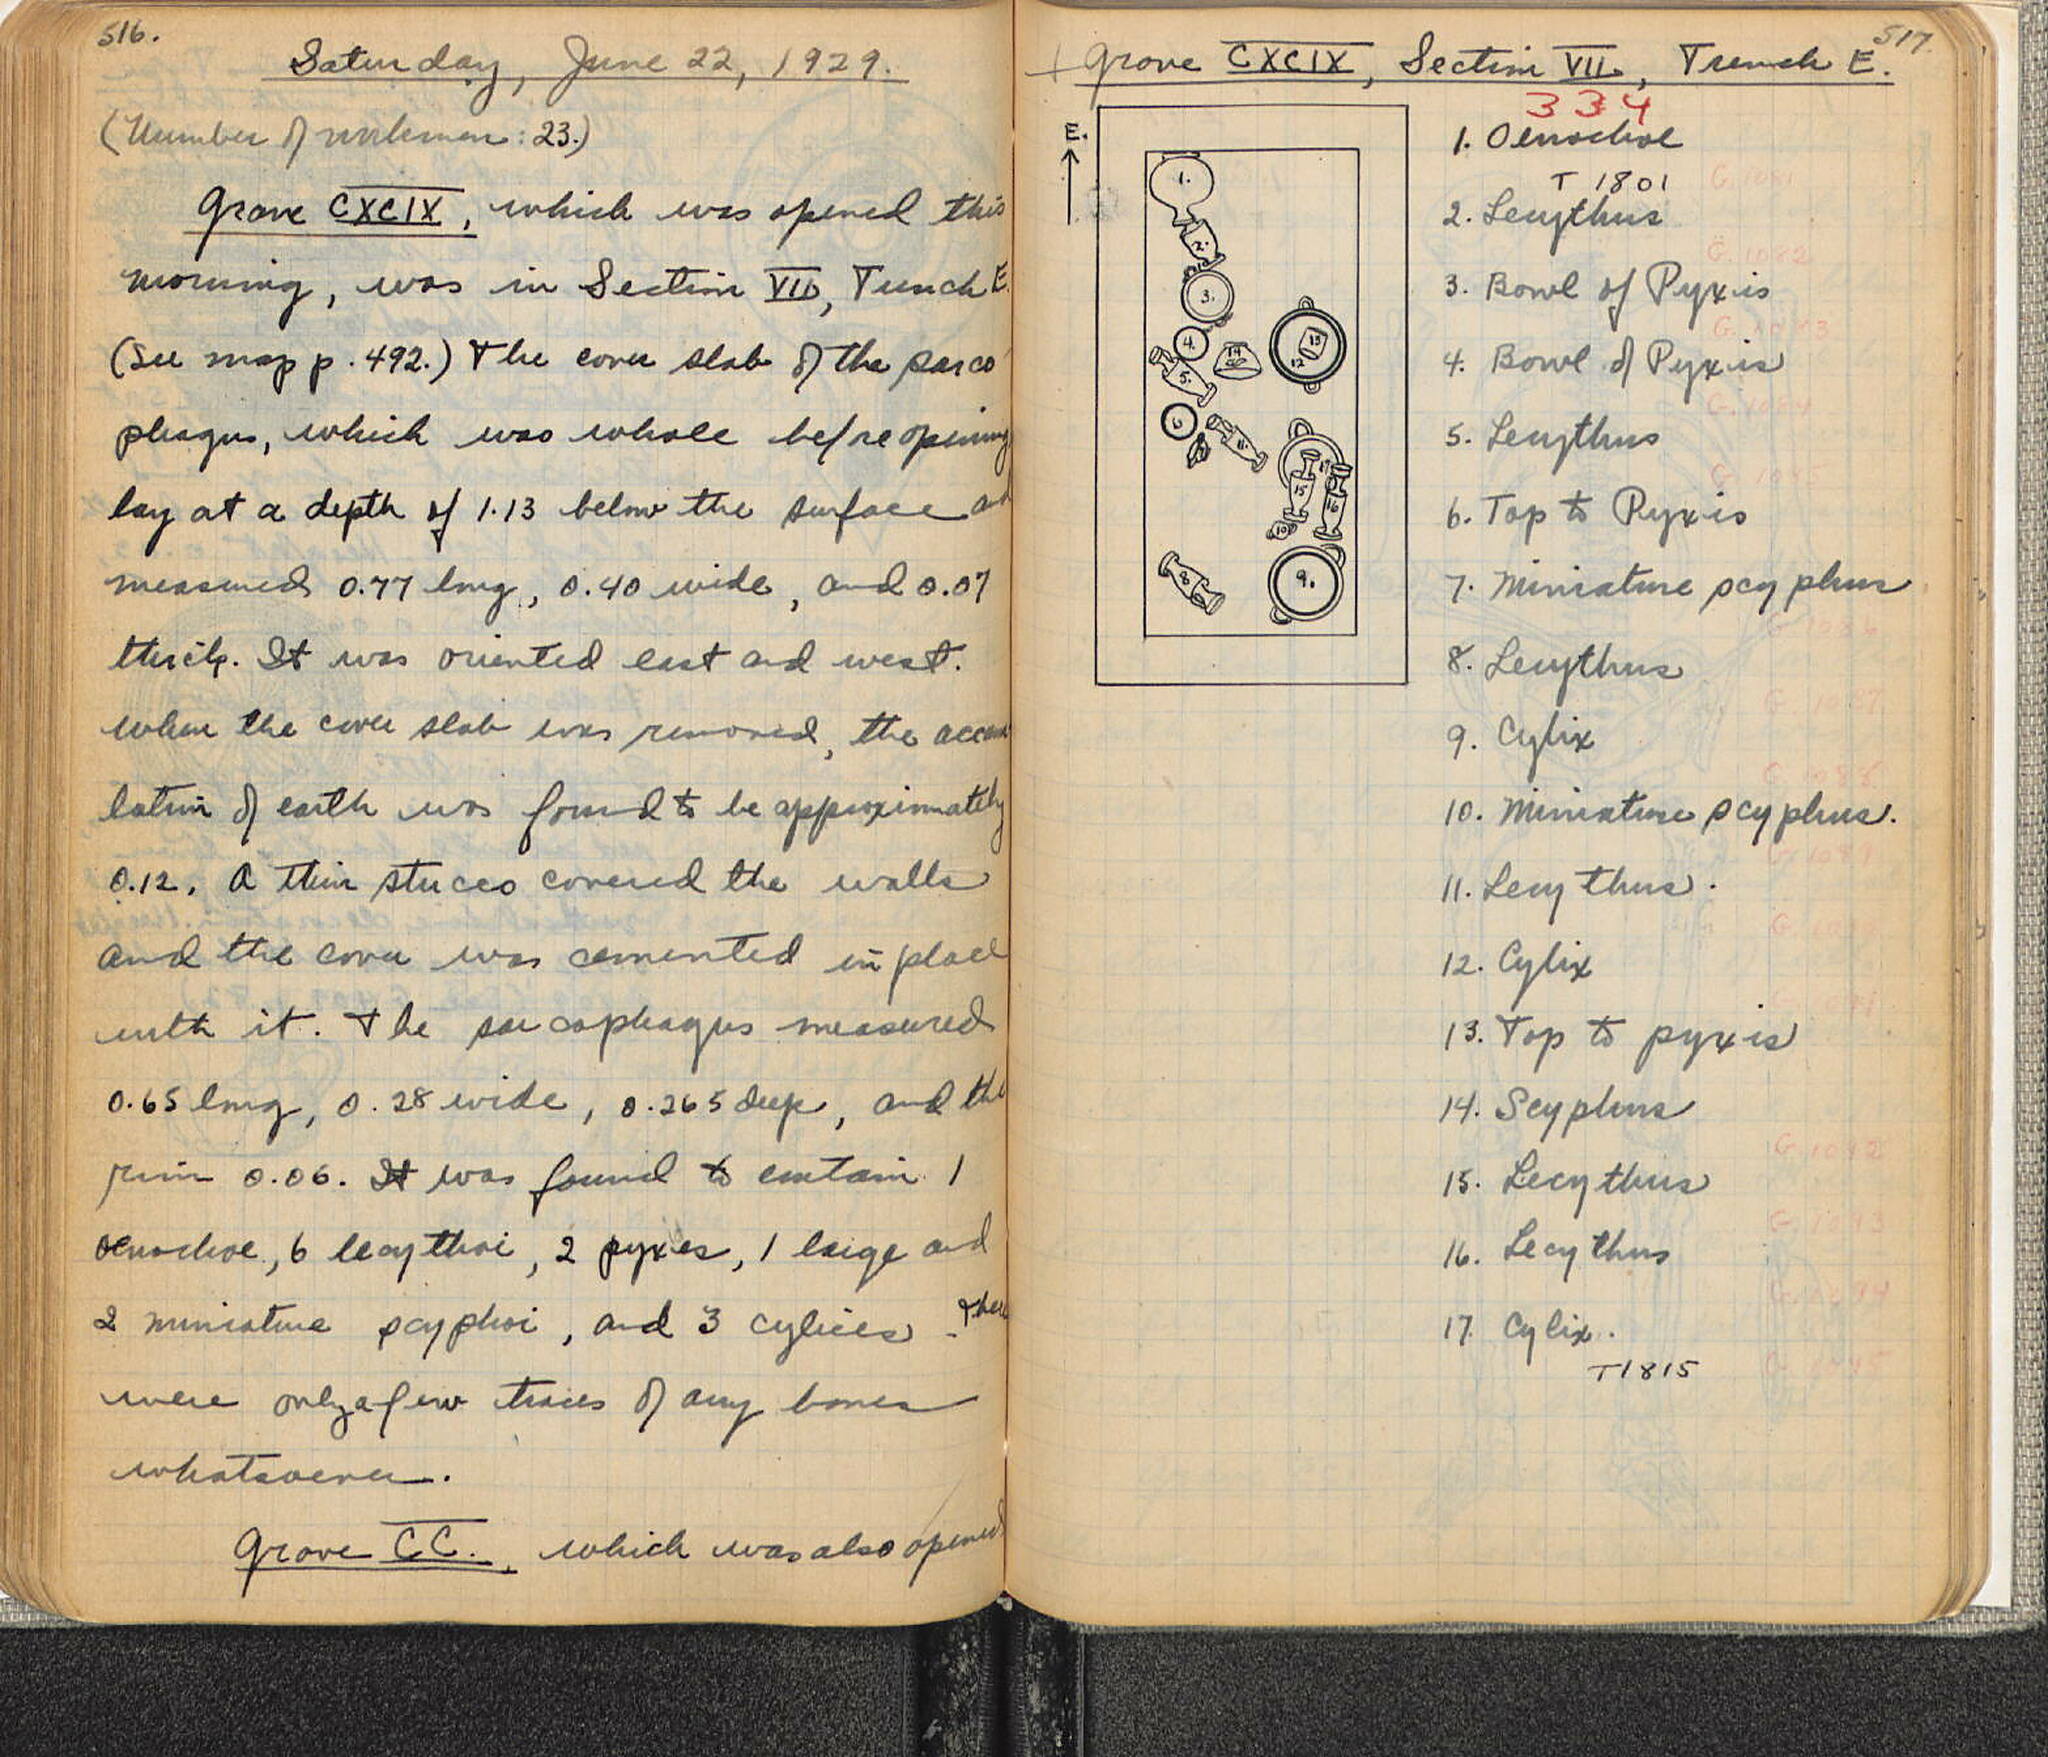 516.
Saturday, June 22, 1929.
(Number of workmen: 23.)
Grave CXCIX, which was opened this
morning, was in Section VII, Trench E.
(See map p. 492.) The cover slab of the sarco
phagus, which was whole before opening
lay at a depth of 1.13 below the surface and
measured 0.77 long, 0.40 wide, and 0.07
thick. It was oriented east and west.
When the cover slab was removed, the accumu
lation of earth was found to be approximately
0.12. A thin stucco covered the walls
and the cover was cemented in place
with it. The sarcophagus measured
0.65 long, 0.28 wide, 0.265 deep, and the
rim 0.06. It was found to contain 1
oenochoe, 6 lecythoi, 2 pyxes, 1 large and
2 miniature scyphoi, and 3 cylices. There
were only a few traces of any bones
whatsoever.
Grave CC., which was also opened
517.
Grave CXCIX, Section VII, Trench E.
334
E.
1.
2.
3.
4.
5.
6
14
13
12
11.
17
15
16
10
8
9.
1. Oenochoe
T 1801
G. 1081
2. Lecythus
G. 1082
3. Bowl of Pyxis
G. 1083
4. Bowl of Pyxis
G. 1084
5. Lecythus
G. 1085
6. Top to Pyxis
7. Miniature scyphus
G. 1086
8. Lecythus
G. 1087
9. Cylix
G. 1088
10. Miniature scyphus.
G. 1089
11. Lecythus.
G. 1090
12. Cylix
13. Top to pyxis
14. Scyphus
G. 1092
15. Lecythus
G. 1093
16. Lecythus
G. 1094
17. Cylix.
T1815
G. 1095